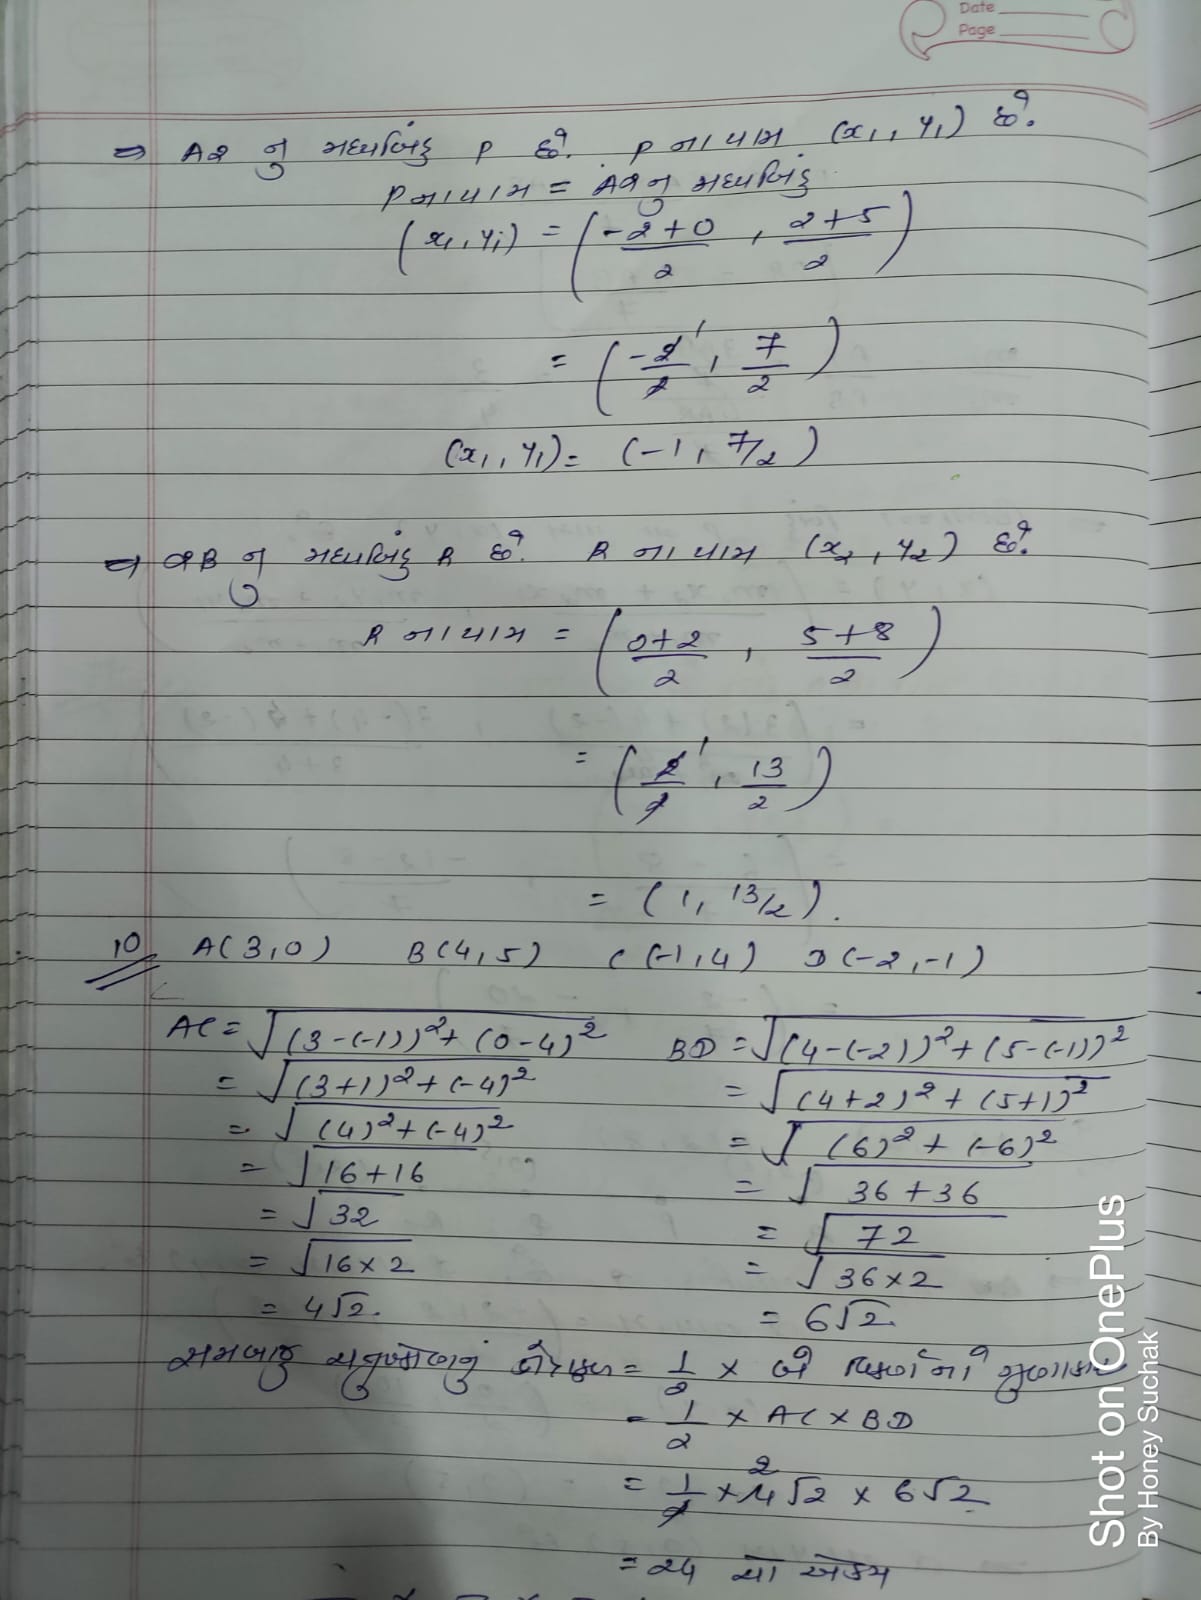 Date
Page
⇒ AQ નુ મધ્યબિંદુ P છે. P ના યામ (x₁, y₁) છે.
P ના યામ = AQ નુ મધ્યબિંદુ
(x₁, y₁) = (-2+0/2, 2+5/2)
= (-2/2, 7/2)
(x₁, y₁) = (-1, 7/2)
⇒ QB નુ મધ્યબિંદુ R છે. R ના યામ (x₂, y₂) છે.
R ના યામ = (0+2/2, 5+8/2)
= (2/2, 13/2)
= (1, 13/2).
10 A(3,0) B(4,5) C(-1,4) D(-2,-1)
AC = √(3-(-1))²+(0-4)² BD = √(4-(-2))²+(5-(-1))²
= √(3+1)²+(-4)² = √(4+2)²+(5+1)²
= √(4)²+(-4)² = √(6)²+(-6)²
= √16+16 = √36+36
= √32 = √72
= √16×2 = √36×2
= 4√2. = 6√2.
સમબાજુ ચતુષ્કોણનું ક્ષેત્રફળ = 1/2 × બે વિકર્ણોનો ગુણાકાર
= 1/2 × AC × BD
= 1/2 × 4√2 × 6√2
= 24 ચો એકમ
Shot on OnePlus
By Honey Suchak